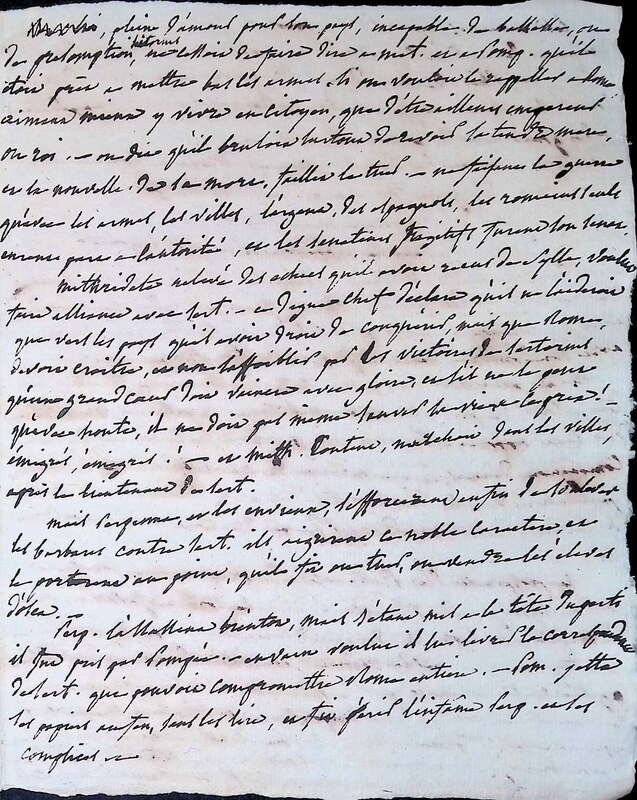 pleine d'amour pour son pays, incapable de bassesse, ou
de présomption, sertorius ne cessoit de faire dire a met. et a Pomp. qu'il
étoit prêt a mettre bas les armes. si on vouloit le rappeller a Rome
aimant mieux y vivre en citoyen, que d'être ailleurs empereur
ou roi. — on dit qu'il bruloit surtout de revoir sa tendre mere,
et la nouvelle de sa mort, faillit le tuer. — ne faisant la guerre
qu'avec les armes, les villes, l'argent, des espagnols, les romains seuls
eurent part a l'autorité, et les senateurs fugitifs furent son senat.
mithridate relevé des echecs qu'il avoit reçus de Sylla, voulut
faire alliance avec sert. — ce digne chef déclara qu'il ne l'aideroit
que vers les pays qu'il avoit droit de conquérir, mais que Rome,
devoit croitre, et non s'affoiblir par les victoires de sertorius
qu'un grand coeur doit vaincre avec gloire, et s'il ne le peut
qu'avec honte, il ne doit pas meme sauver sa vie a ce prix! —
émigrés, émigrés! — et mith. marchoit dans les villes,
après le lieutenant de sert.
mais Perpenna, et les envieux, s'efforcerent enfin de soulever
les barbares contre sert. ils aigrirent ce noble caractere, et
le porterent au point, qu'il fit ou tuer, ou vendre les éleves
d'osca.
Perp. l'assassina bientôt, mais s'étant mis a la tête du parti
il fut pris par Pompée. — en vain voulut il lui livrer la correspondance
de sert. qui pouvoit compromettre Rome entiere. — Pom. jetta
les papiers au feu, sans les lire, et fit périr l'infâme Perp. et ses
complices —